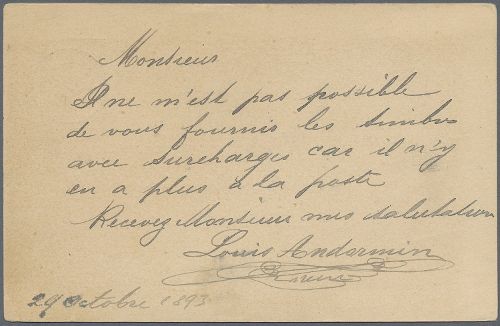 Monsieur
Il ne m'est pas possible
de vous fournir les timbres
avec surcharges car il n'y
en a plus à la poste
Recevez Monsieur mes salutations
Louis Andermin
29 Octobre 1893